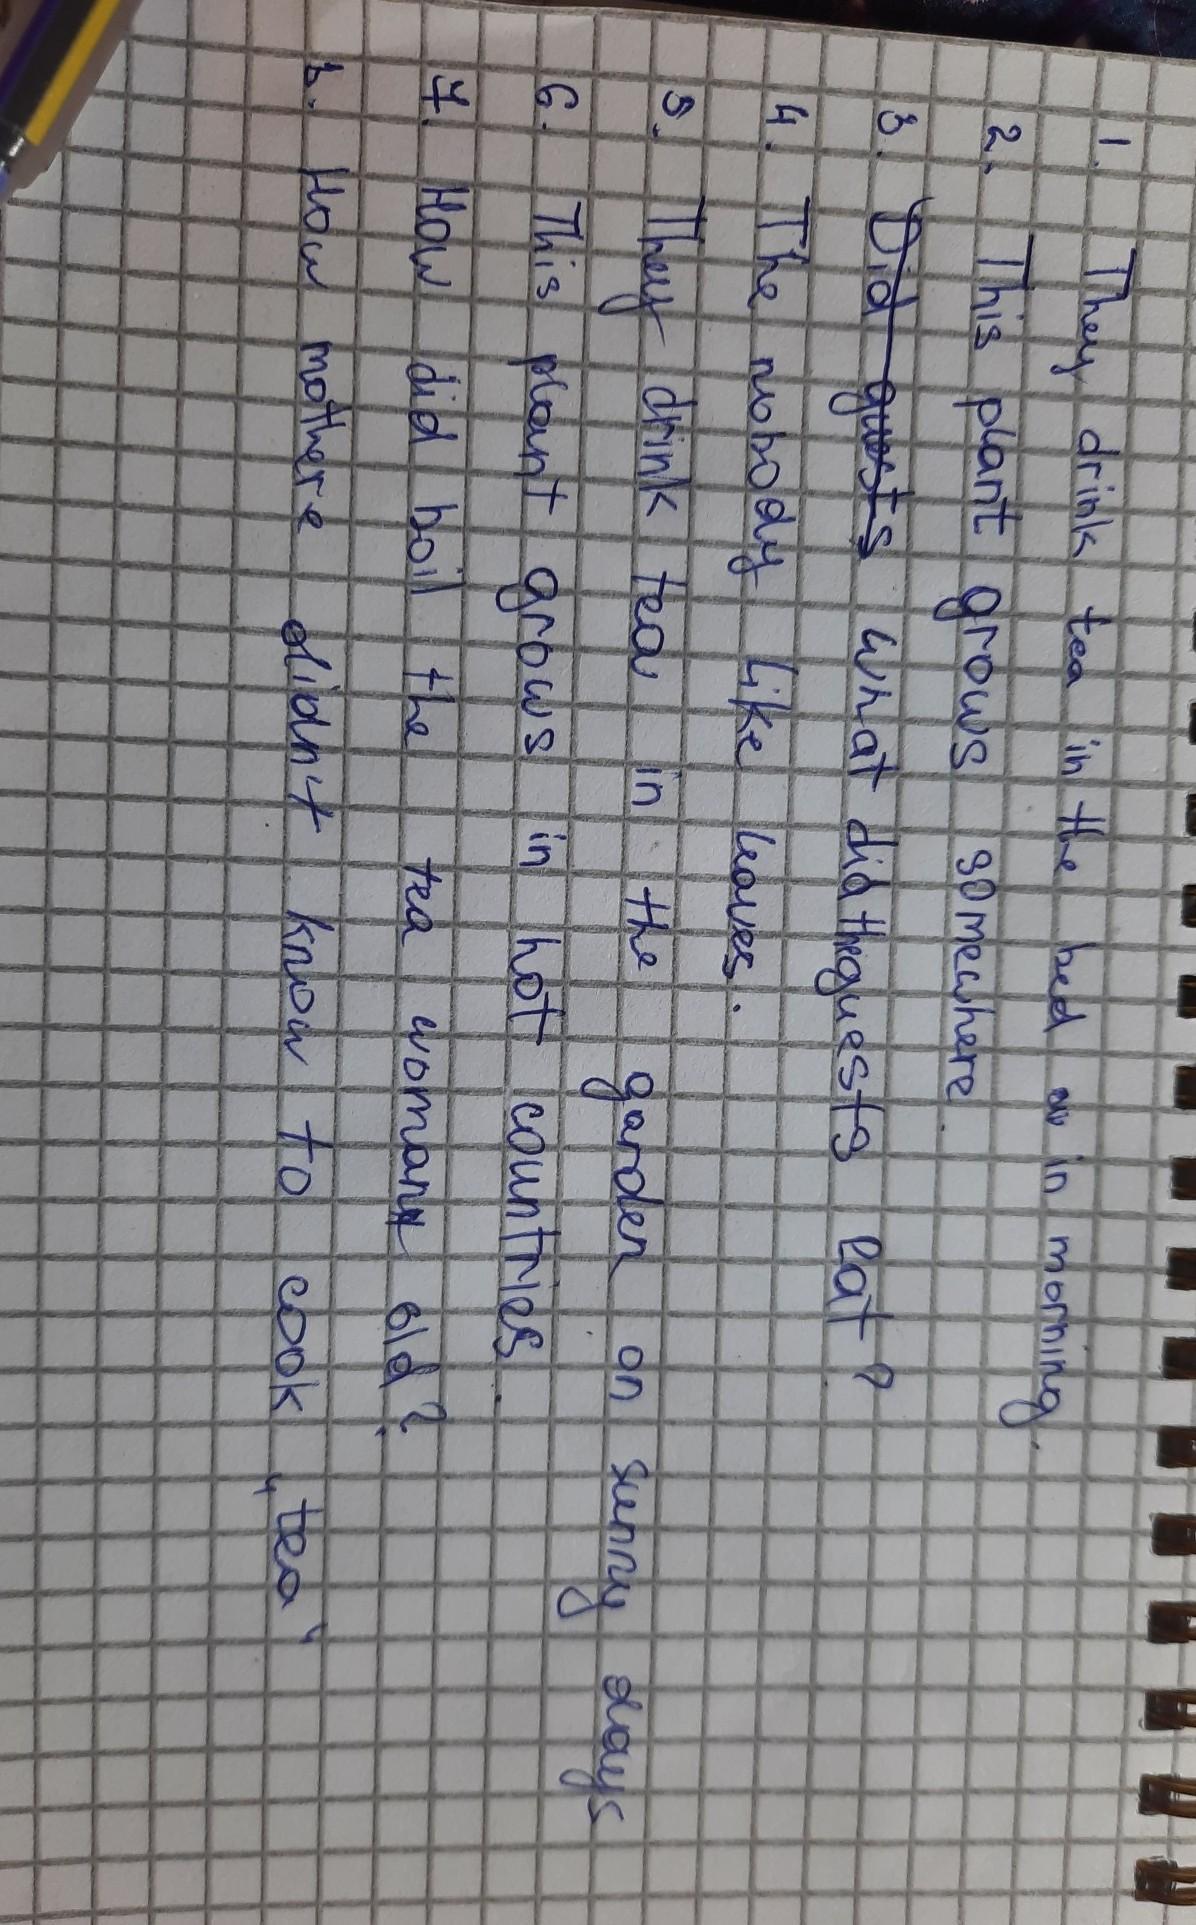 1. They drink tea in the bed in morning.
2. This plant grows somewhere.
3. Did guests what did the guests eat?
4. The nobody like leaves.
5. They drink tea in the garden on sunny days
6. This plant grows in hot countries.
7. How did boil the tea woman old?
8. How mothere didn't know to cook „tea"